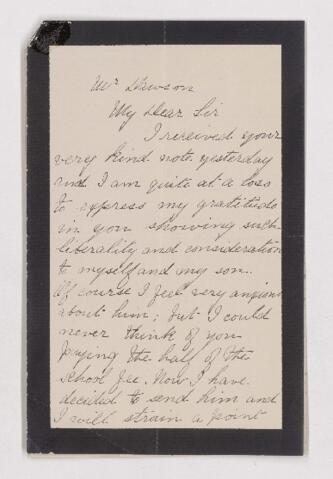 Mr Dawson
My Dear Sir
I received your
very kind note yesterday
and I am quite at a loss
to express my gratitude
in you showing such
liberality and consideration
to myself and my son.
Of course I feel very anxious
about him; but I could
never think of you
paying the half of the
school fee. Now I have
decided to send him and
I will strain a point